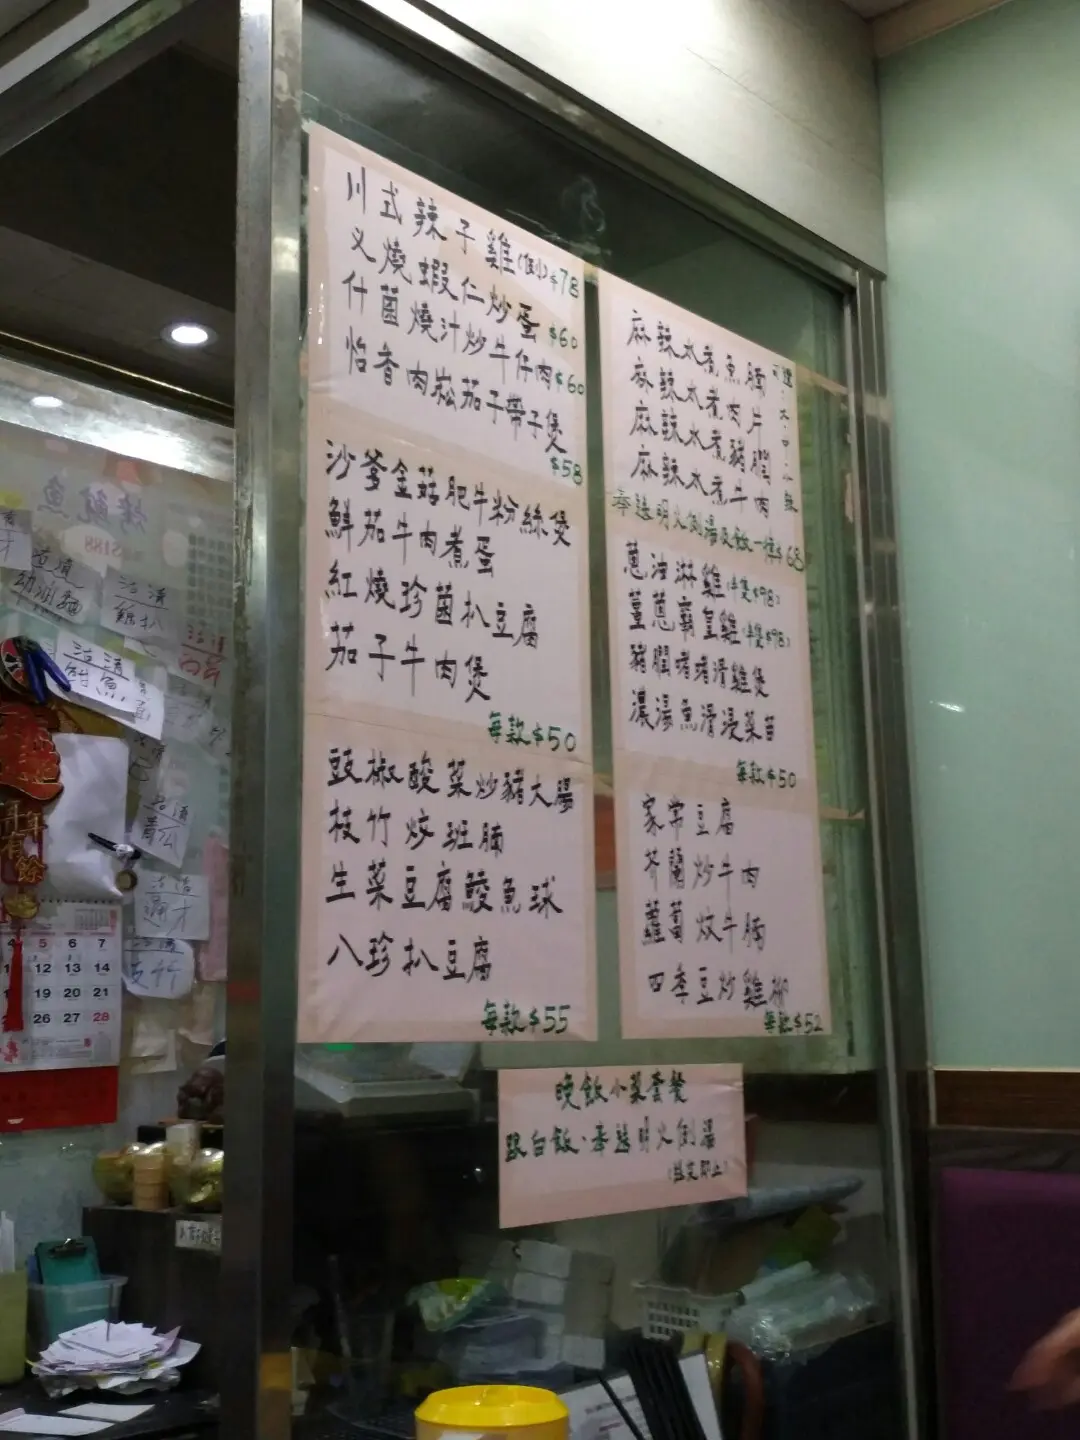 川式辣子雞(僅小)$78
义燒蝦仁炒蛋 $60
什菌燒汁炒牛仔肉 $60
怡香肉崧茄子帶子煲
$58
沙爹金菇肥牛粉絲煲
鮮茄牛肉煮蛋
紅燒珍菌扒豆腐
茄子牛肉煲
每款$50
豉椒酸菜炒豬大腸
枝竹炆班腩
生菜豆腐鯪魚球
八珍扒豆腐
每款$55
麻辣水煮魚腩
麻辣水煮肉片
麻辣水煮豬膶
麻辣水煮牛肉
奉送明火例湯及飯一樽$68
蔥油淋雞(半隻$98)
薑蔥霸皇雞(半隻$98)
豬膶啫啫滑雞煲
濃湯魚滑浸菜苗
每款$50
家常豆腐
芥蘭炒牛肉
蘿蔔炆牛腩
四季豆炒雞柳
每款$52
晚飯小菜套餐
跟白飯·奉送明火例湯
(送完即止)
沽清
雞扒
沽清
沽清
沽清
年年有餘
4 5 6 7
12 13 14
19 20 21
26 27 28